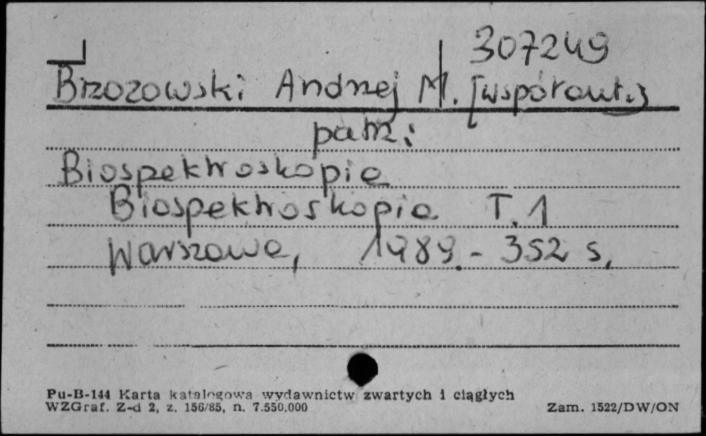 307249
Brzozowski Andrzej M. [współaut.]
patrz:
Biospektroskopia
Biospektroskopia T. 1
Warszawa, 1989. - 352 s.
Pu-B-144 Karta katalogowa wydawnictw zwartych i ciągłych
WZGraf. Z-d 2, z. 156/85, n. 7.550.000 Zam. 1522/DW/ON